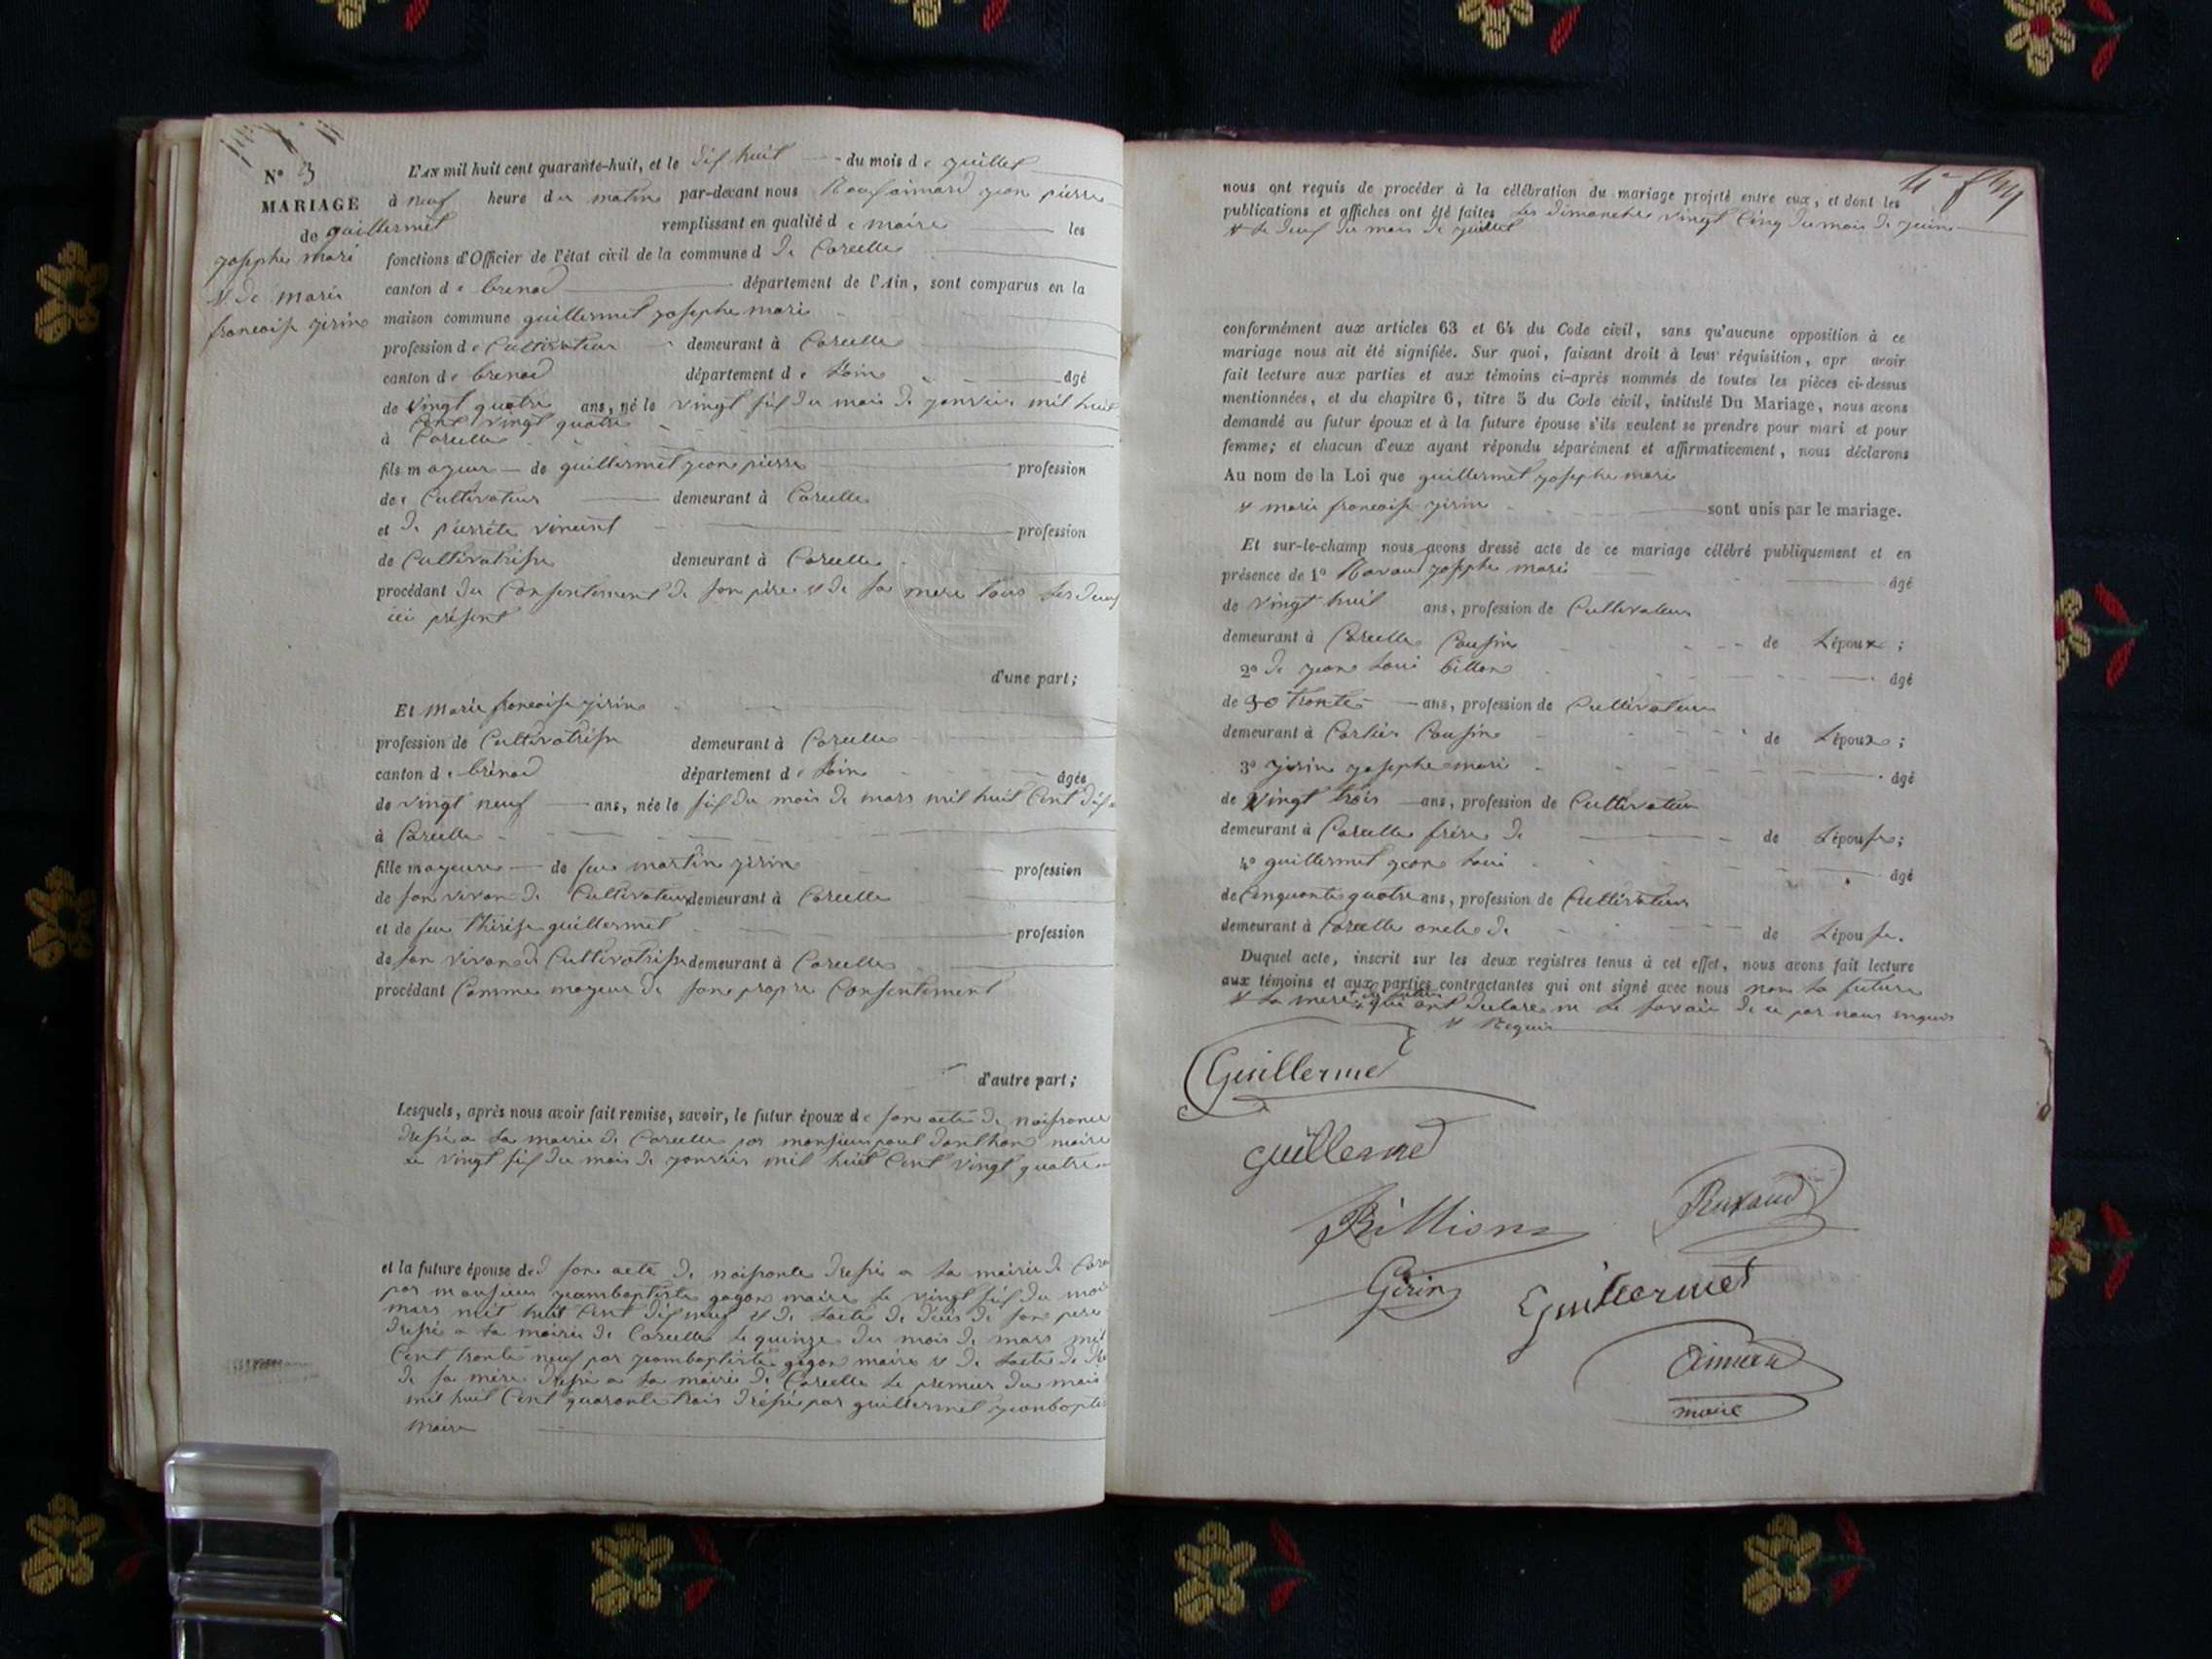 N° 3
MARIAGE
de guillermet
josephe mari
& de marie
francoise jirin
L'AN mil huit cent quarante-huit, et le dix huit du mois de juillet
à neuf heure du matin par-devant nous aimard jean pierre
remplissant en qualité de maire les
fonctions d'Officier de l'état civil de la commune d de Corcelle
canton de brenod département de l'Ain, sont comparus en la
maison commune guillermet josephe mari
profession de Cultivateur demeurant à Corcelle
canton de brenod département de Lain âgé
de vingt quatre ans, né le vingt six du mois de janvier mil huit
cent vingt quatre
à Corcelle
fils mayeur de guillermet jean pierre profession
de Cultivateur demeurant à Corcelle
et de pierrete vincent profession
de Cultivatrise demeurant à Corcelle
procédant du Consentement de son père & de sa mere tous les deux
ici présent
d'une part;
Et marie francoise jirin
profession de Cultivatrise demeurant à Corcelle
canton de brénod département de Lain âgée
de vingt neuf ans, née le six du mois de mars mil huit Cent dix
à Corcelle
fille mayeure de feu martin jirin profession
de son vivan de Cultivateur demeurant à Corcelle
et de feu thérèse guillermet profession
de son vivan de Cultivatrise demeurant à Corcelle
procédant Comme mayeur de son propre Consentement
d'autre part;
Lesquels, après nous avoir fait remise, savoir, le futur époux de son acte de naissance
dressé a la mairie de Corcelle par monsieur paul maire
le vingt six du mois de janvier mil huit Cent vingt quatre
et la future épouse de son acte de naissance dressé a la mairie de Corc
par monsieur jeambaptiste gogon maire le vingt six du moi
mars mil huit Cent dix neuf & de lacte de décès de son pere
dressé a la mairie de Corcelle le quinze du mois de mars mil
Cent trente neuf par jeambaptiste gogon maire & de lacte de dé
de sa mère dressé a la mairie de Corcelle le premier du mois
mil huit Cent quarante trois dréssé par guillermet jeanbaptis
maire
nous ont requis de procéder à la célébration du mariage projeté entre eux, et dont les
publications et affiches ont été faites les dimanche vingt Cinq du mois de juin
& le deux du mois de juillet
conformément aux articles 63 et 64 du Code civil, sans qu'aucune opposition à ce
mariage nous ait été signifiée. Sur quoi, faisant droit à leur réquisition, apr avoir
fait lecture aux parties et aux témoins ci-après nommés de toutes les pièces ci-dessus
mentionnées, et du chapitre 6, titre 5 du Code civil, intitulé Du Mariage, nous avons
demandé au futur époux et à la future épouse s'ils veulent se prendre pour mari et pour
femme; et chacun d'eux ayant répondu séparément et affirmativement, nous déclarons
Au nom de la Loi que guillermet josephe mari
& marie francoise jirin sont unis par le mariage.
Et sur-le-champ nous avons dressé acte de ce mariage célébré publiquement et en
présence de 1° Ravaud josephe marie âgé
de vingt huit ans, profession de Cultivateur
demeurant à Corcelle Cousin de Lépoux;
2° de jean loui billon âgé
de 30 trente ans, profession de Cultivateur
demeurant à Corlier Cousin de Lépoux;
3° jirin josephe mari âgé
de vingt trois ans, profession de Cultivateur
demeurant à Corcelle frère de de Lépouse;
4° guillermet jean loui âgé
de Cinquante quatre ans, profession de Cultivateur
demeurant à Corcelle oncle de de Lépouse.
Duquel acte, inscrit sur les deux registres tenus à cet effet, nous avons fait lecture
aux témoins et aux parties contractantes qui ont signé avec nous non la future
& la mere qui ont declare ne le savoir de ce par nous enquis
& Requis
Guillermet
guillermet
Billion
Ravaud
Girin
Guillermet
Aimard
maire